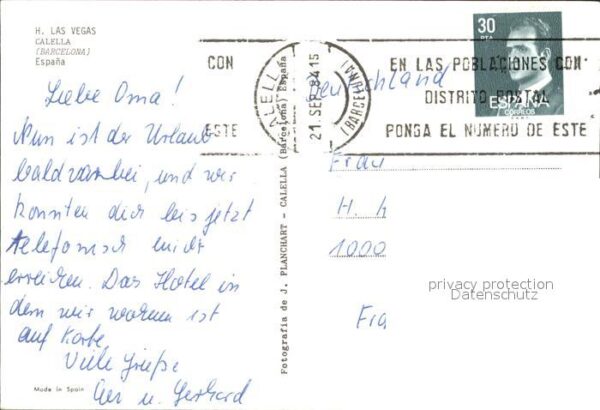 H. LAS VEGAS
CALELLA
(BARCELONA)
España
Liebe Oma!
Nun ist der Urlaub
bald vorbei, und wir
konnten dich bis jetzt
telefonisch nicht
erreichen. Das Hotel in
dem wir waren ist
auf Karte.
Viele Grüße
u. Gerhard
Made in Spain
Fotografia de J. PLANCHART - CALELLA (Barcelona) España
CALELLA
21 SEP. 84 15
(BARCELONA)
CON
ESTE
EN LAS POBLACIONES CON
DISTRITO POSTAL
PONGA EL NUMERO DE ESTE
30
PTA
ESPAÑA
CORREOS
Deutschland
Frau
H. k
1000
Fra
privacy protection
Datenschutz